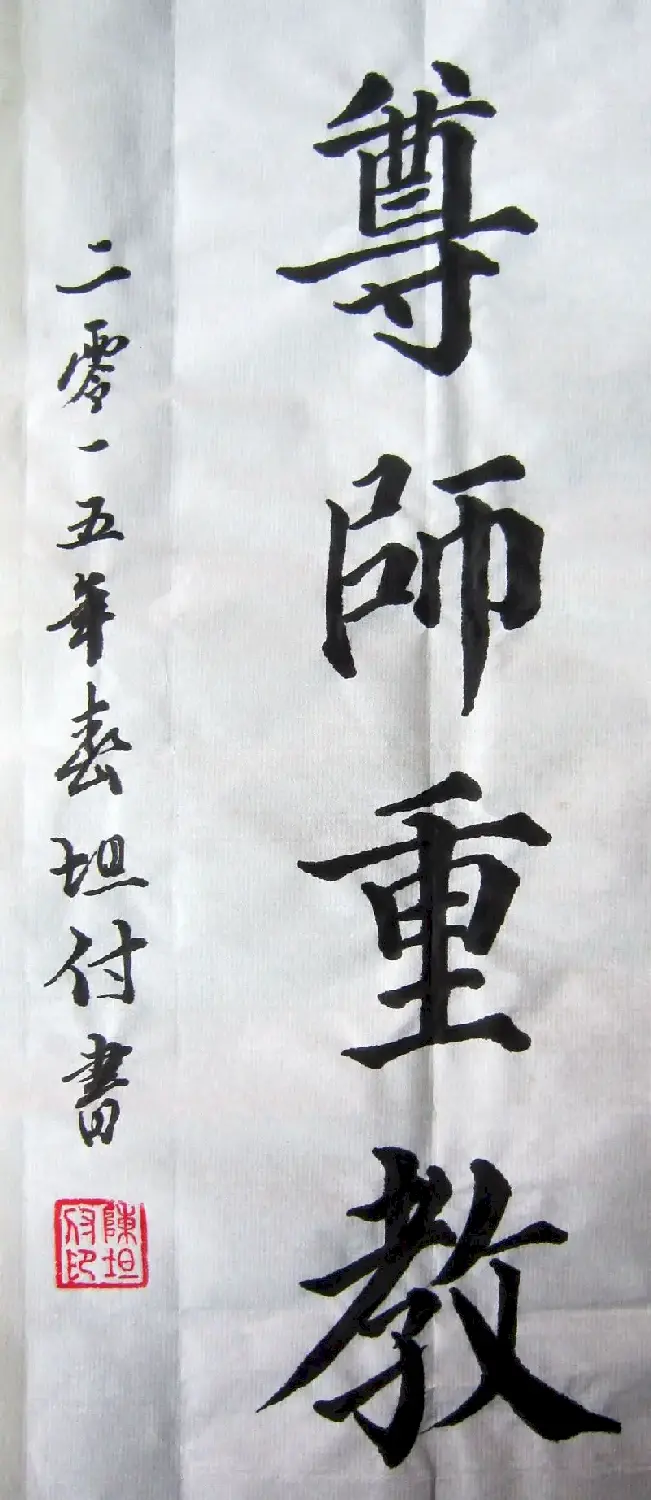 尊師重教
二零一五年春坦付書
陳坦付印